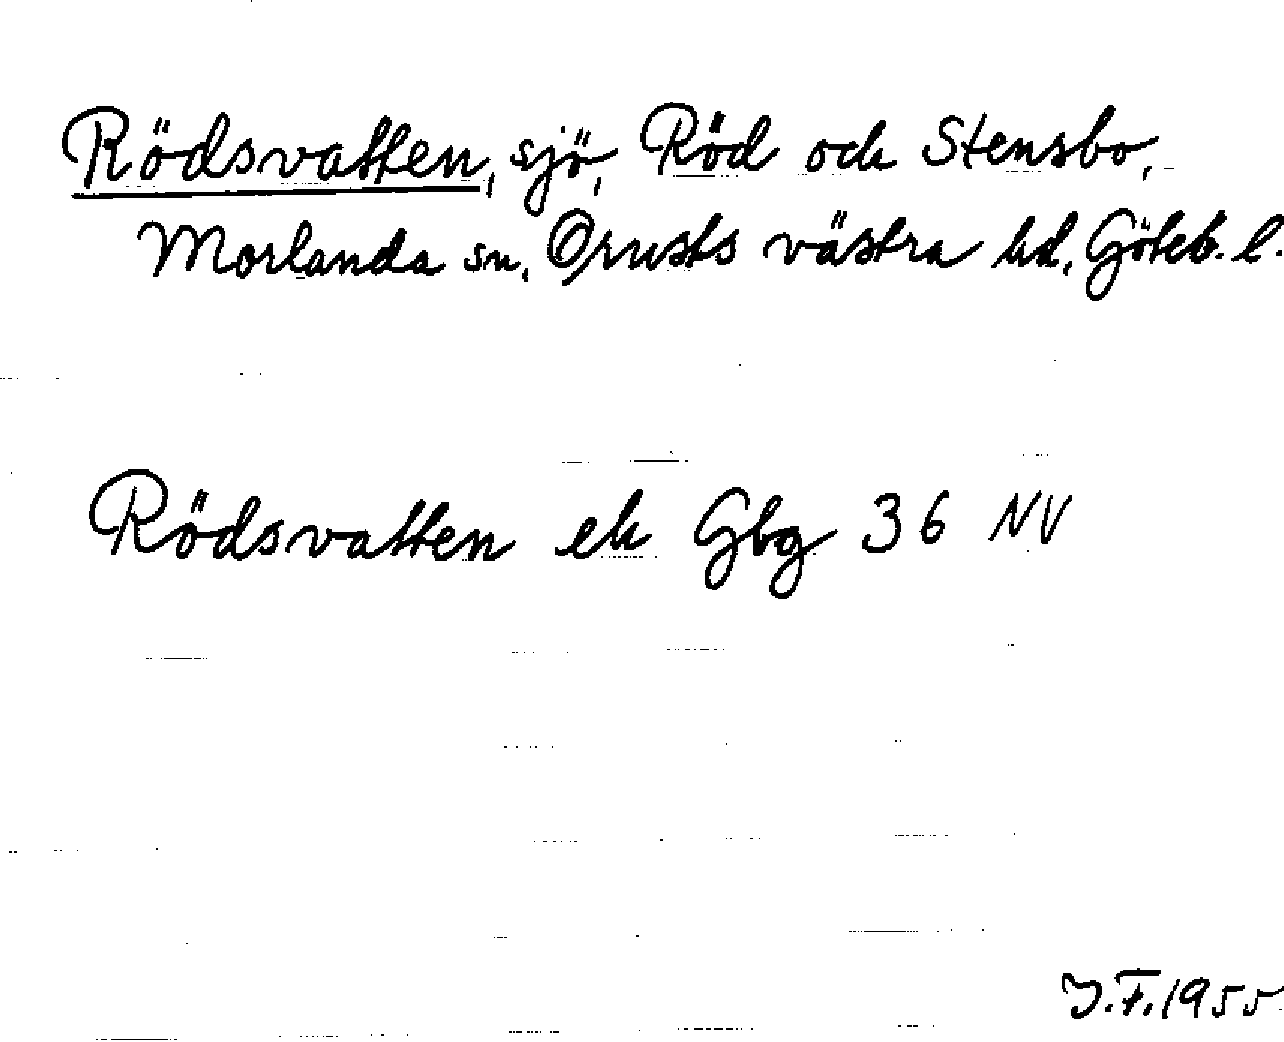 Rödsvatten, sjö, Röd och Stensbo,
Morlanda sn, Orusts västra hd, Göteb. l.
Rödsvatten ek Gbg 36 NV
J.F. 1955